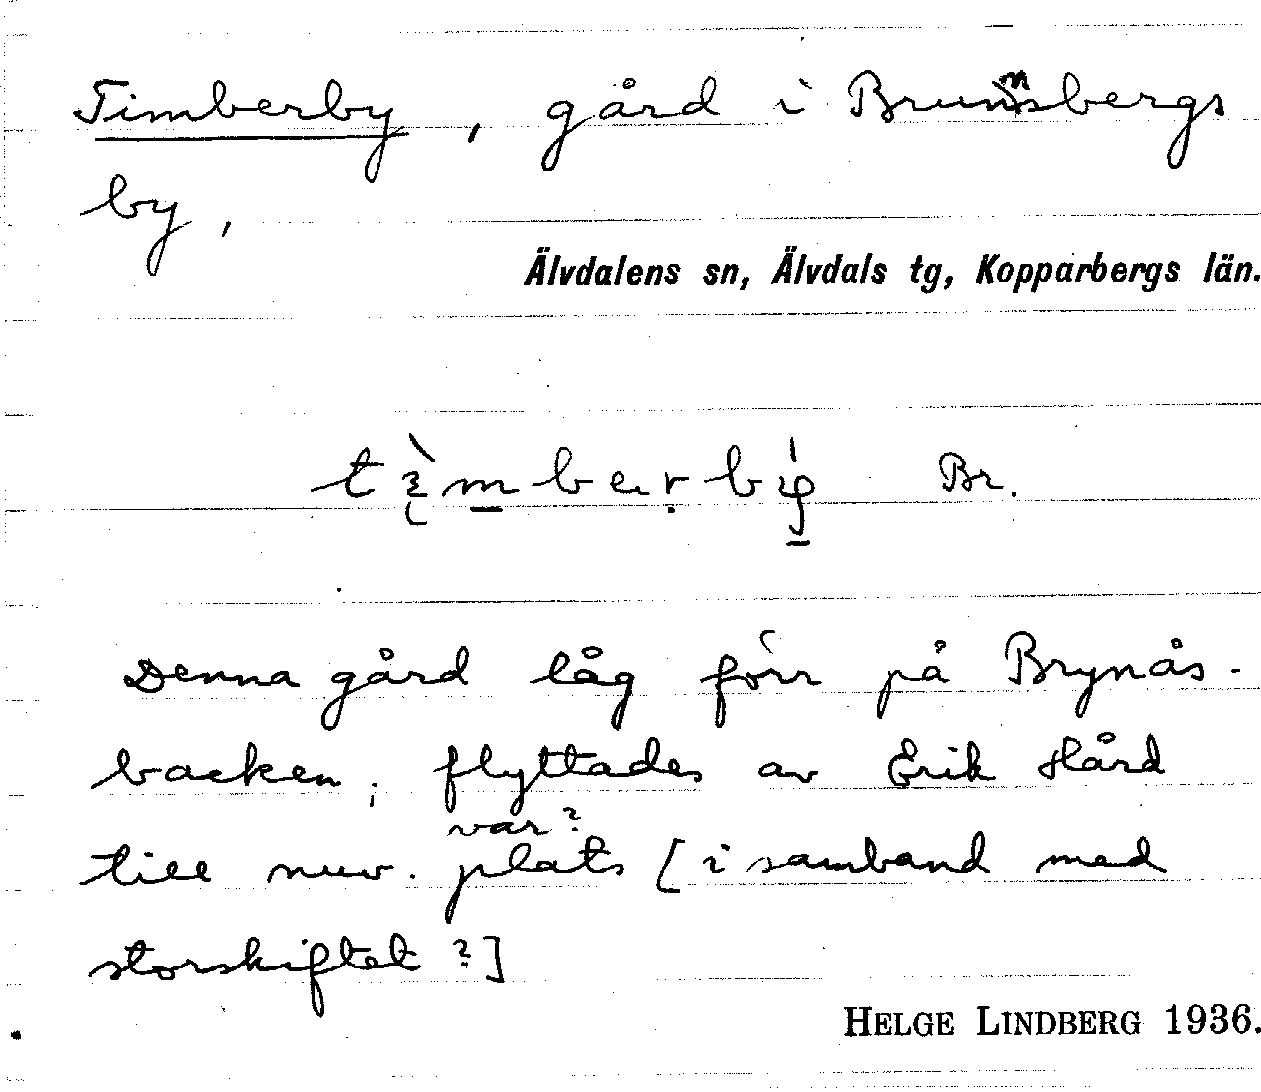 Timberby, gård i Brunnsbergs
by,
Älvdalens sn, Älvdals tg, Kopparbergs län.
Br.
Denna gård låg förr på Brynås-
backen; flyttades av Erik Hård
var?
till nuv. plats [i samband med
storskiftet?]
HELGE LINDBERG 1936.